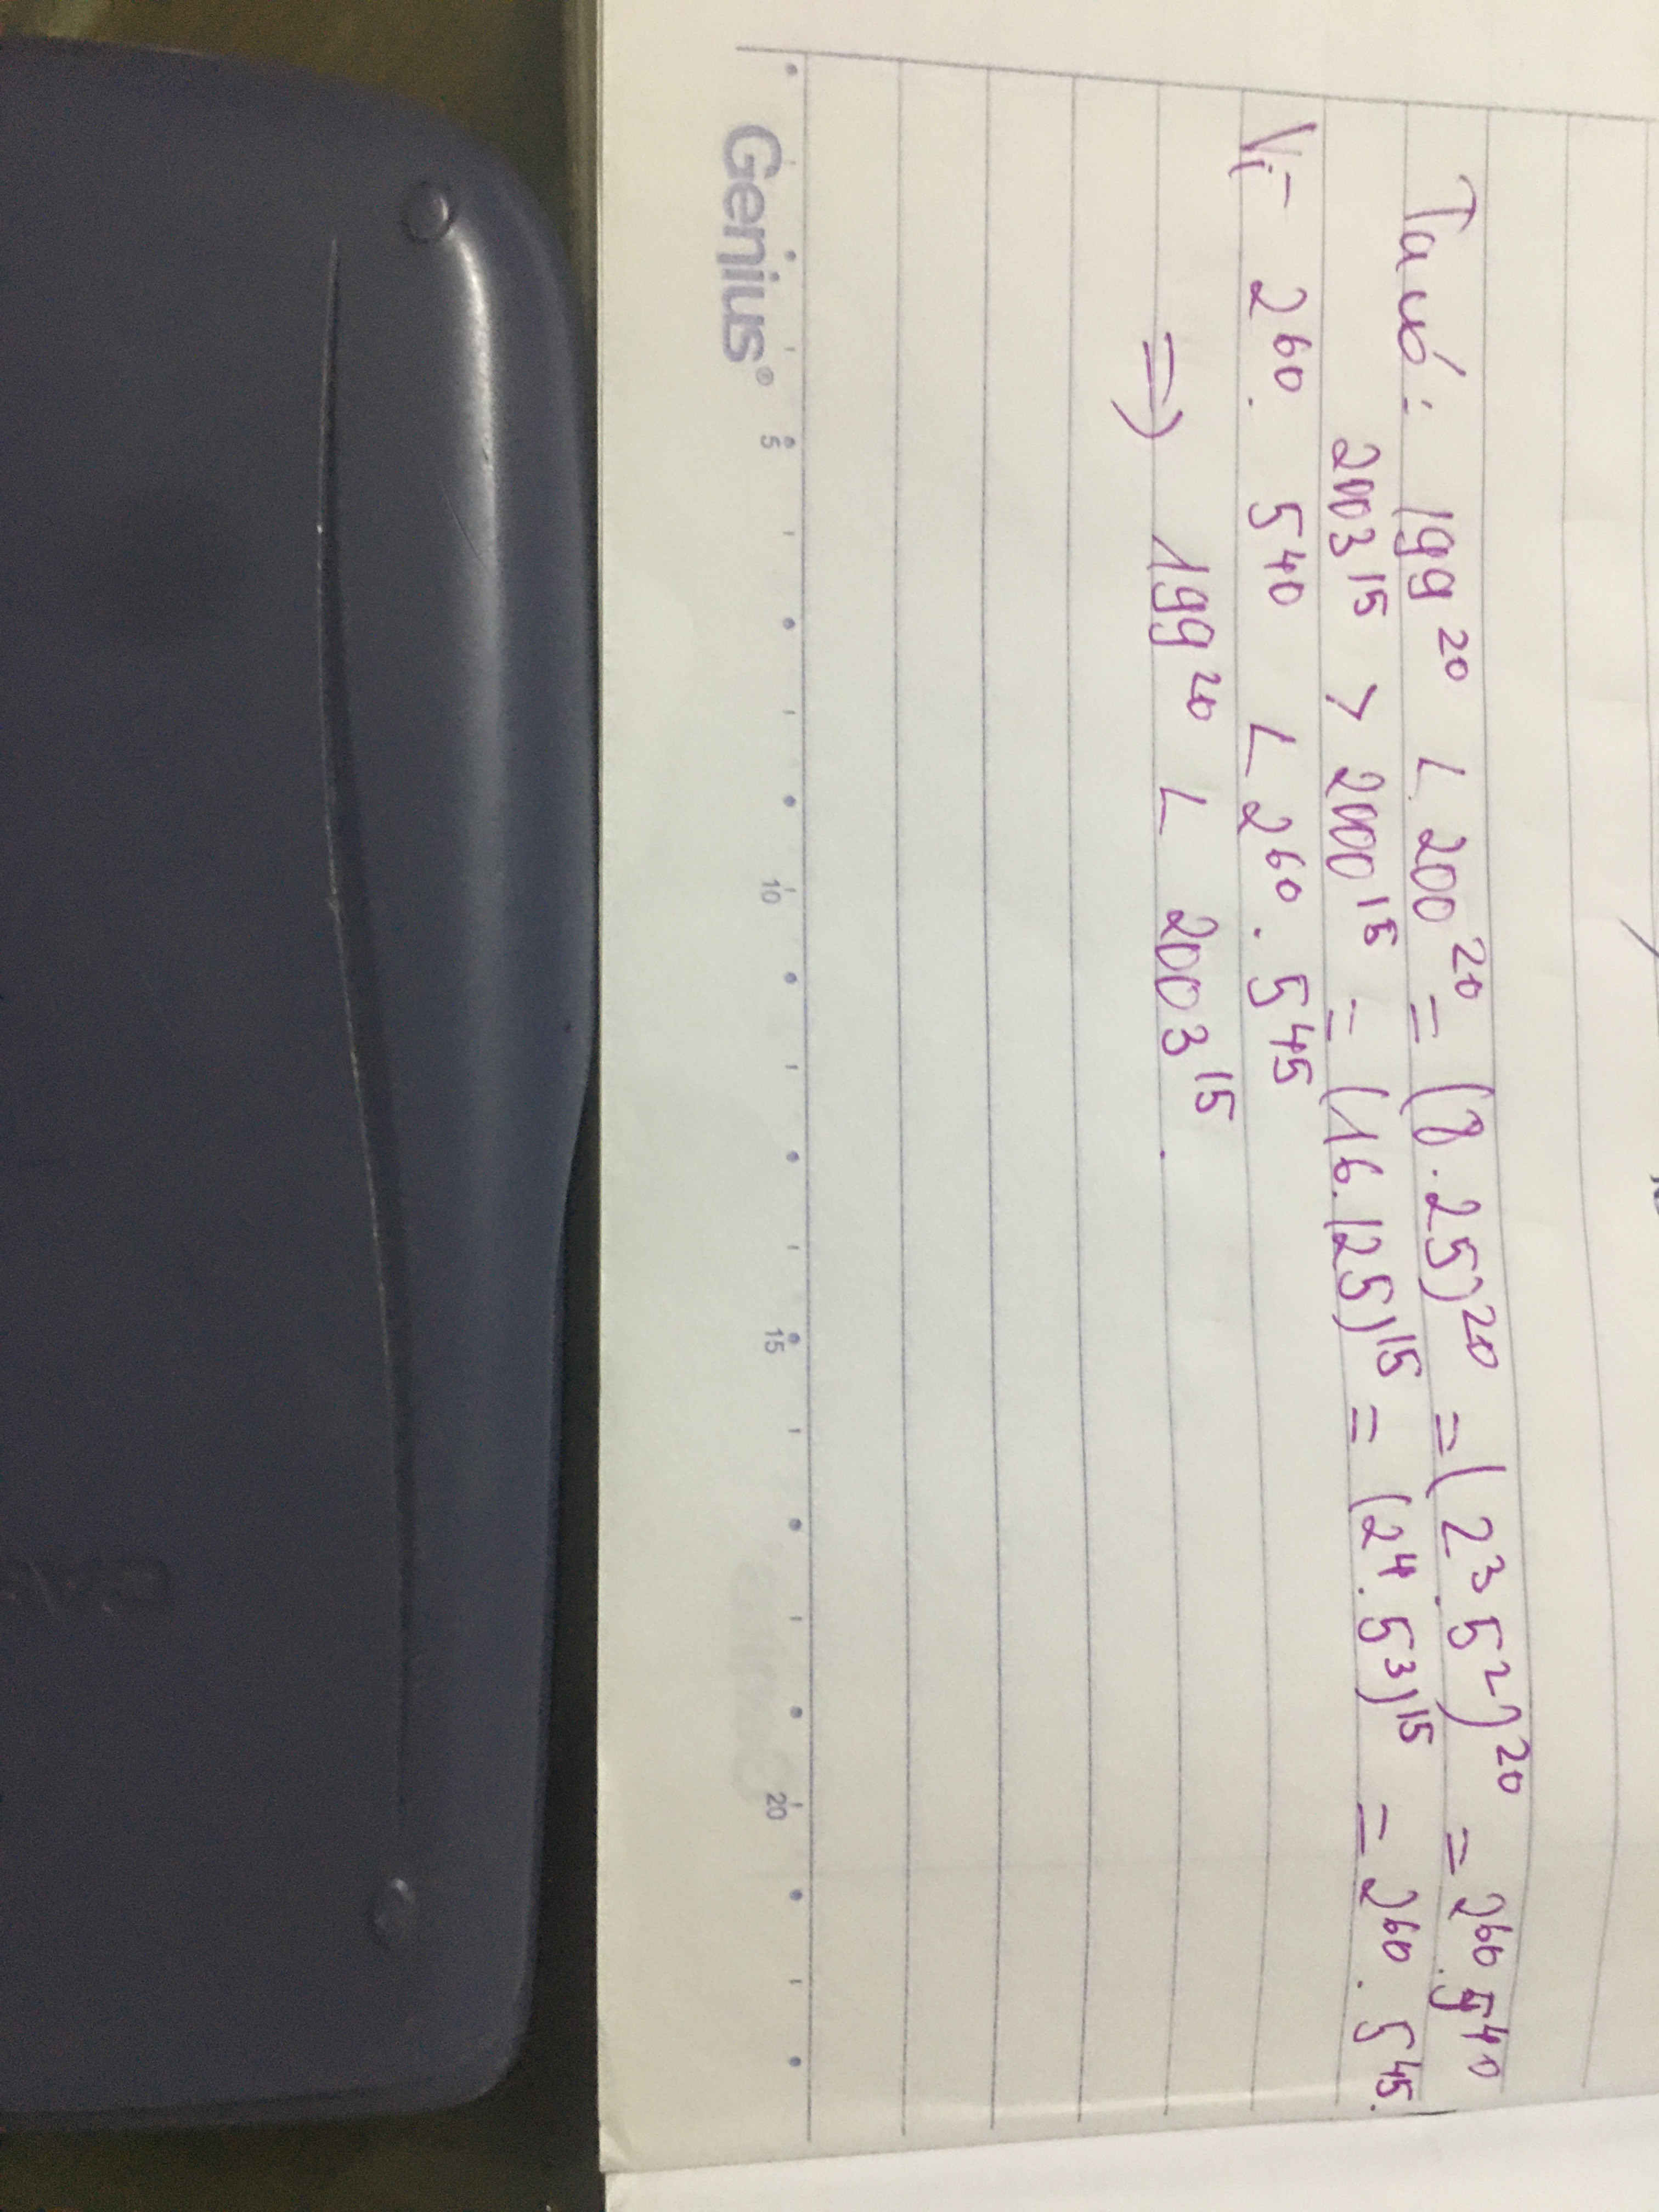 Ta có: 199²⁰ < 200²⁰ = (8.25)²⁰ = (2³.5²)²⁰ = 2⁶⁰.5⁴⁰
2003¹⁵ > 2000¹⁵ = (16.125)¹⁵ = (2⁴.5³)¹⁵ = 2⁶⁰.5⁴⁵.
Vì 2⁶⁰.5⁴⁰ < 2⁶⁰.5⁴⁵
=> 199²⁰ < 2003¹⁵.
Genius® 5 10 15 20